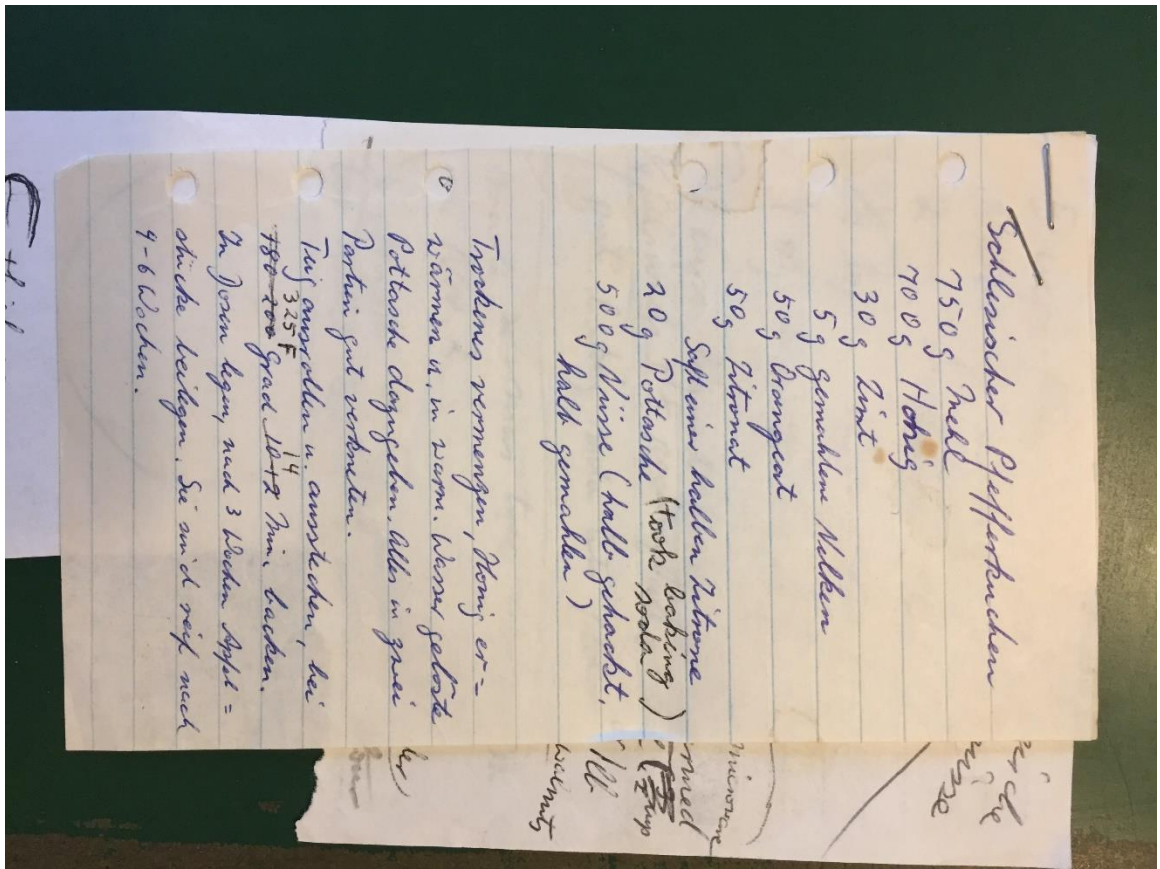 Schlesischer Pfefferkuchen
750 g Mehl
700 g Honig
30 g Zimt
5 g gemahlene Nelken
50 g Orangeat
50 g Zitronat
Saft einer halben Zitrone
20 g Pottasche (took baking soda)
500 g Nüsse (halb gehackt,
halb gemahlen)
Trockenes vermengen, Honig er=
wärmen u. in warm. Wasser gelöste
Pottasche dazugeben. Alles in zwei
Partien gut verkneten.
Teig ausrollen u. ausstechen, bei
325 F 14
180-200 Grad 10+2 Min. backen.
In Dosen legen, nach 3 Wochen Apfel=
stücke beilegen. Sie sind reif nach
4-6 Wochen.
microwave
1 lb
walnuts